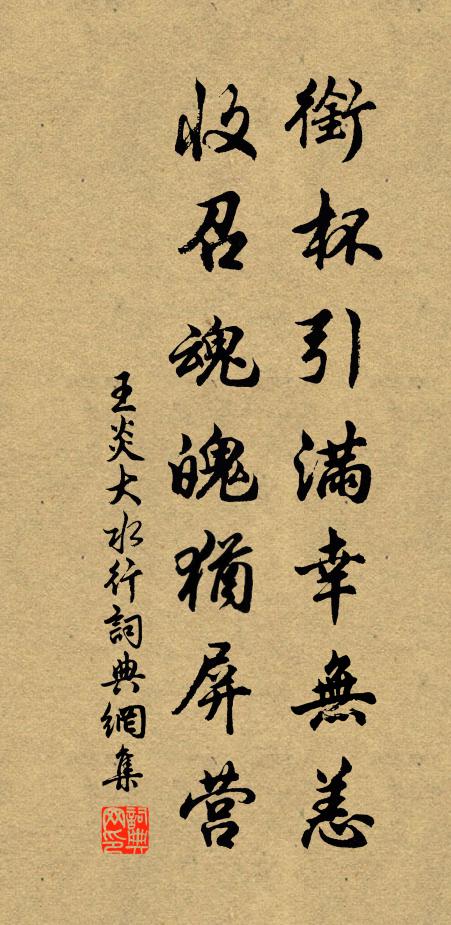 銜杯引滿幸無恙
收召魂魄猶屏营
王炎大水行詞典網集
詞典网印